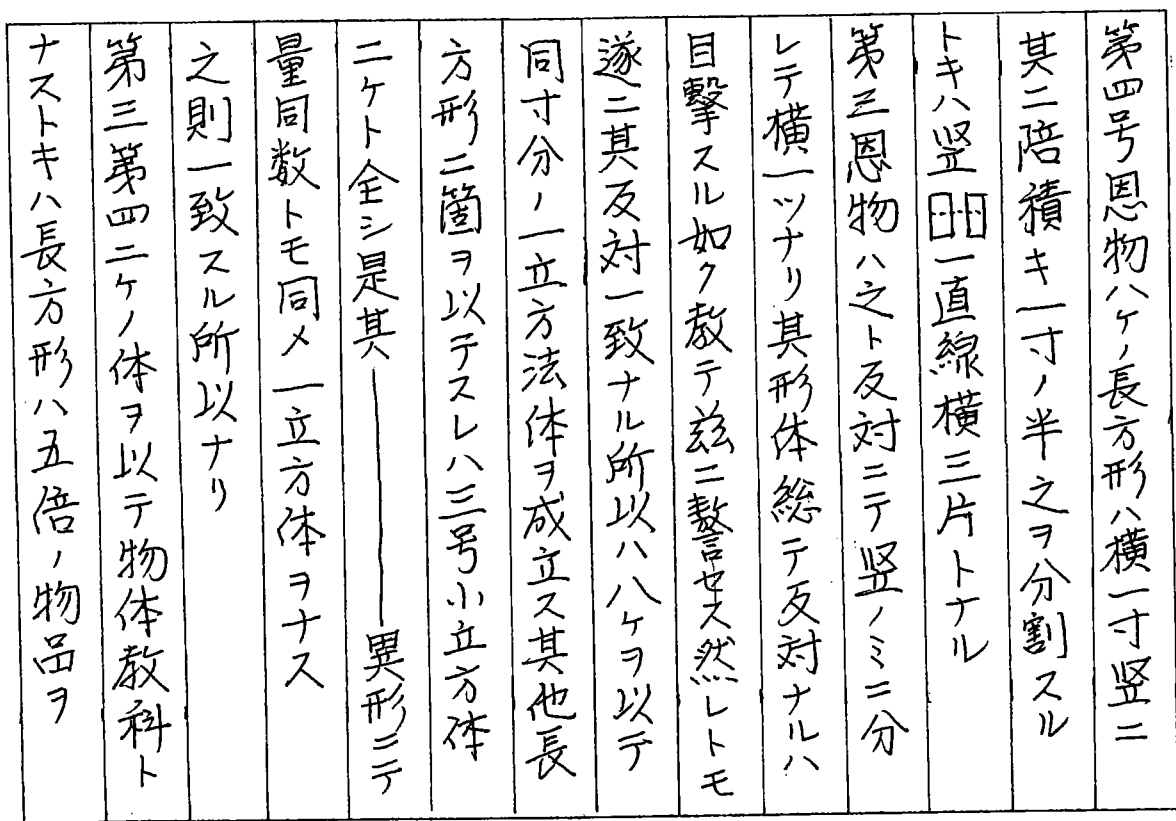 第四号恩物八ケノ長方形ハ横一寸竪ニ
其二陪積キ一寸ノ半之ヲ分割スル
トキハ竪一直線横三片トナル
第三恩物ハ之ト反対ニテ竪ノミニ分
レテ横一ツナリ其形体総テ反対ナルハ
目撃スル如ク教テ茲ニ警セス然レトモ
遂ニ其反対一致ナル所以ハ八ケヲ以テ
同寸分ノ一立方法体ヲ成立ス其他長
方形二箇ヲ以テスレハ三号小立方体
二ケト全シ是其――――異形ニテ
量同数トモ同メ一立方体ヲナス
之則一致スル所以ナリ
第三第四二ケノ体ヲ以テ物体教科ト
ナストキハ長方形ハ五倍ノ物品ヲ